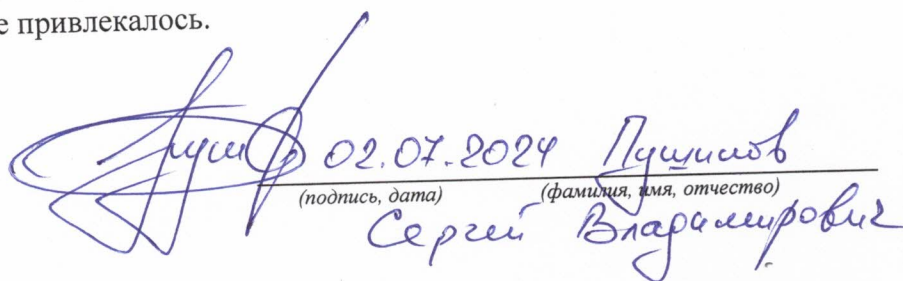 е привлекалось.
02.07.2024 Пушилов
(подпись, дата) (фамилия, имя, отчество)
Сергей Владимирович